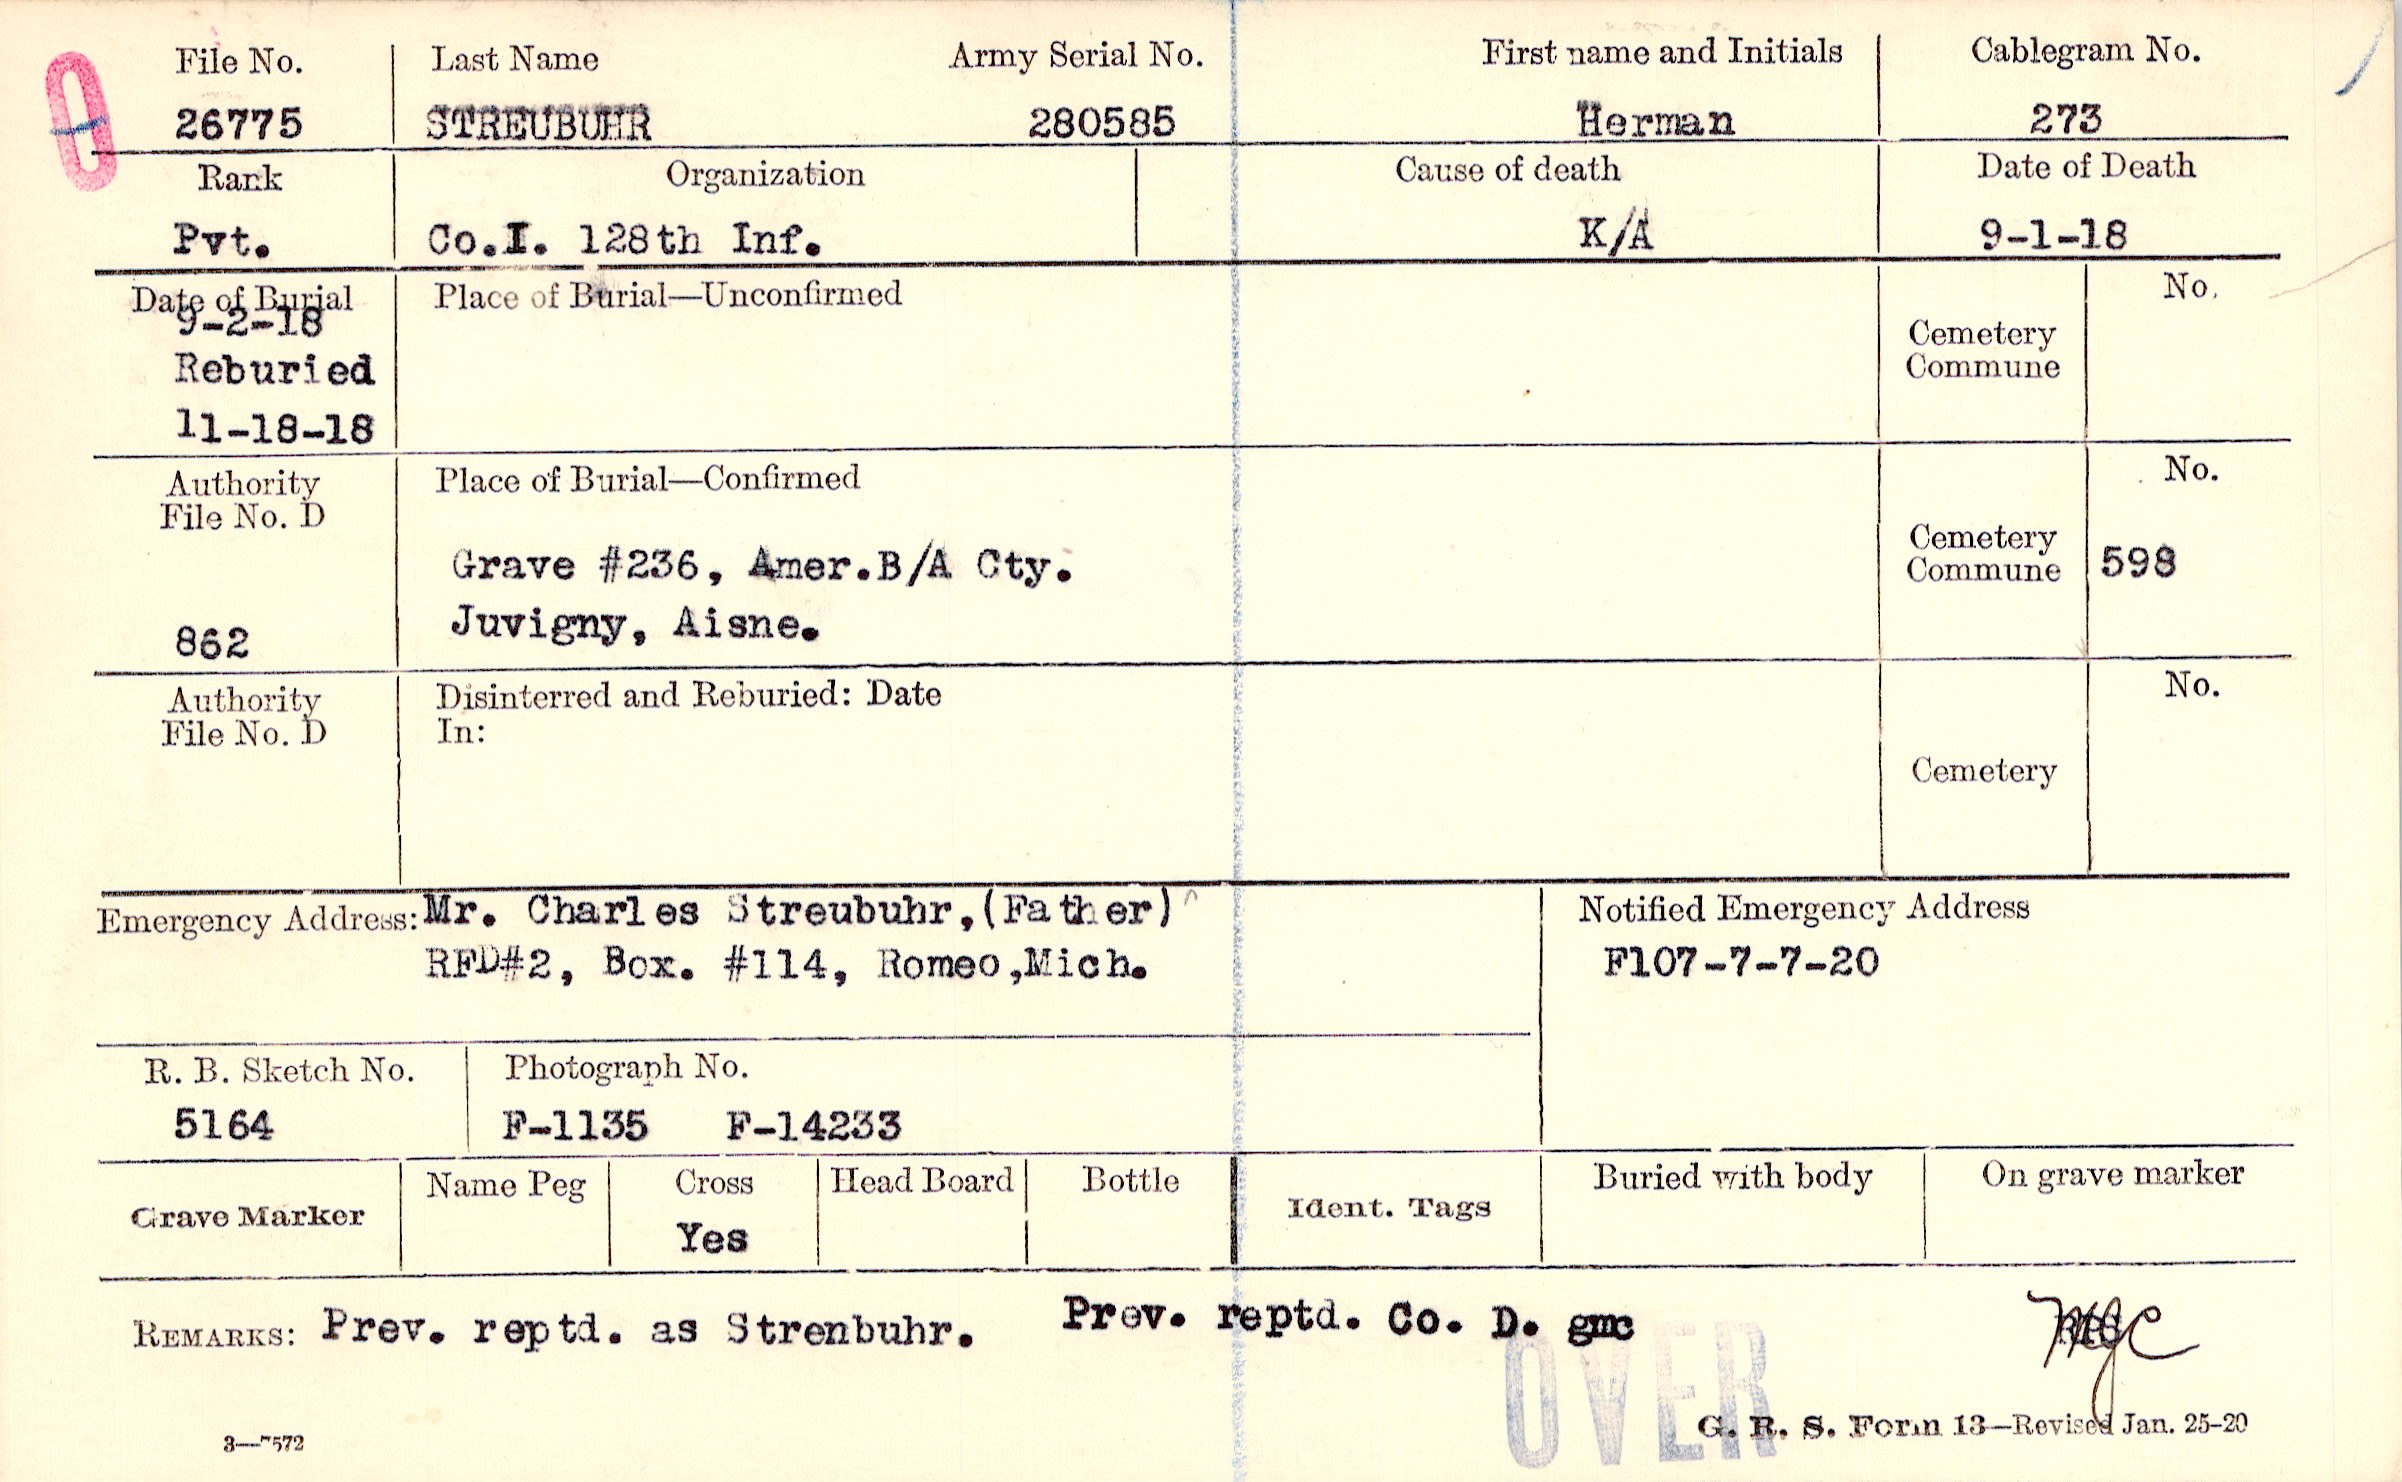 File No. Last Name Army Serial No. First name and Initials Cablegram No.
26775 STREUBUHR 280585 Herman 273
Rank Organization Cause of death Date of Death
Pvt. Co.I. 128th Inf. K/A 9-1-18
Date of Burial Place of Burial—Unconfirmed No.
9-2-18
Reburied
11-18-18
Cemetery
Commune
Authority Place of Burial—Confirmed No.
File No. D
Grave #236, Amer.B/A Cty.
Juvigny, Aisne.
862
Cemetery
Commune 598
Authority Disinterred and Reburied: Date No.
File No. D In:
Cemetery
Emergency Address: Mr. Charles Streubuhr,(Father)
RFD#2, Box. #114, Romeo,Mich.
Notified Emergency Address
F107-7-7-20
R. B. Sketch No. Photograph No.
5164 F-1135 F-14233
Grave Marker Name Peg Cross Head Board Bottle Ident. Tags Buried with body On grave marker
Yes
REMARKS: Prev. reptd. as Strenbuhr. Prev. reptd. Co. D. gmc
OVER
G. R. S. Form 13—Revised Jan. 25-20
3—7572